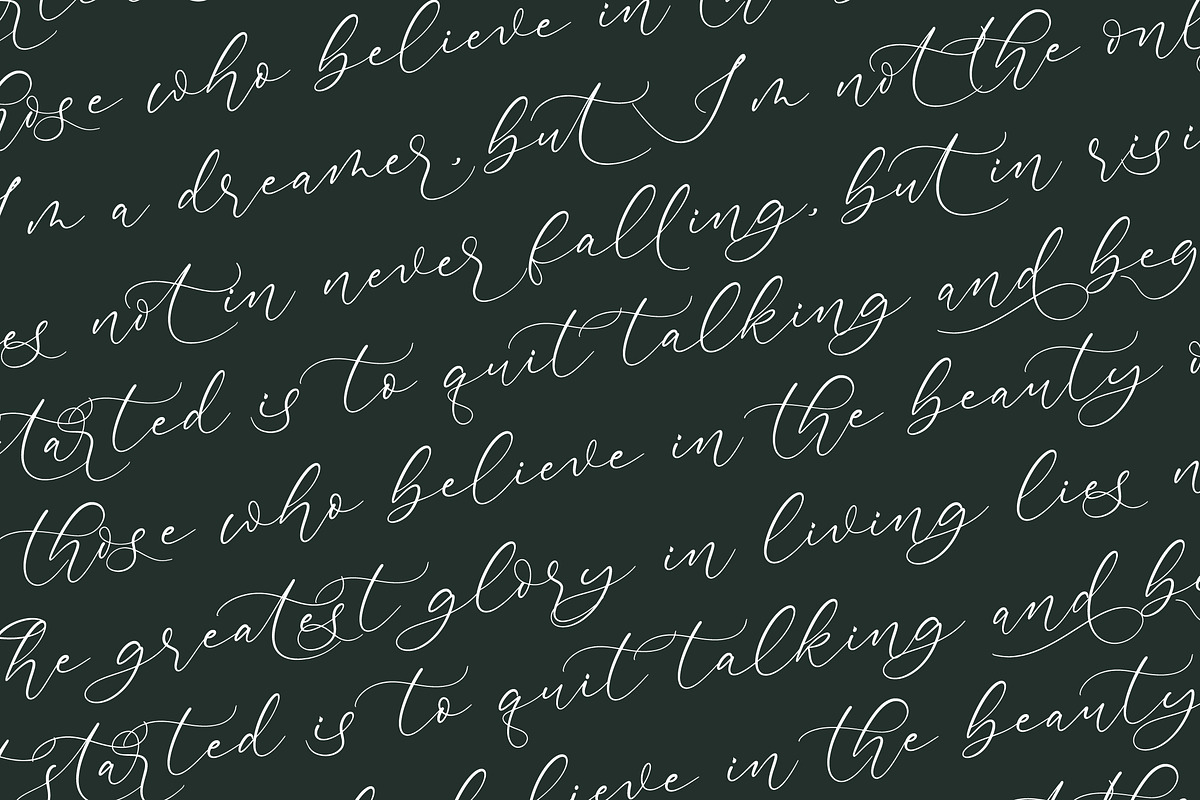 those who believe in
I'm a dreamer, but I'm not the only
es not in never falling, but in risi
started is to quit talking and beg
those who believe in the beauty o
the greatest glory in living lies n
started is to quit talking and be
believe in the beauty